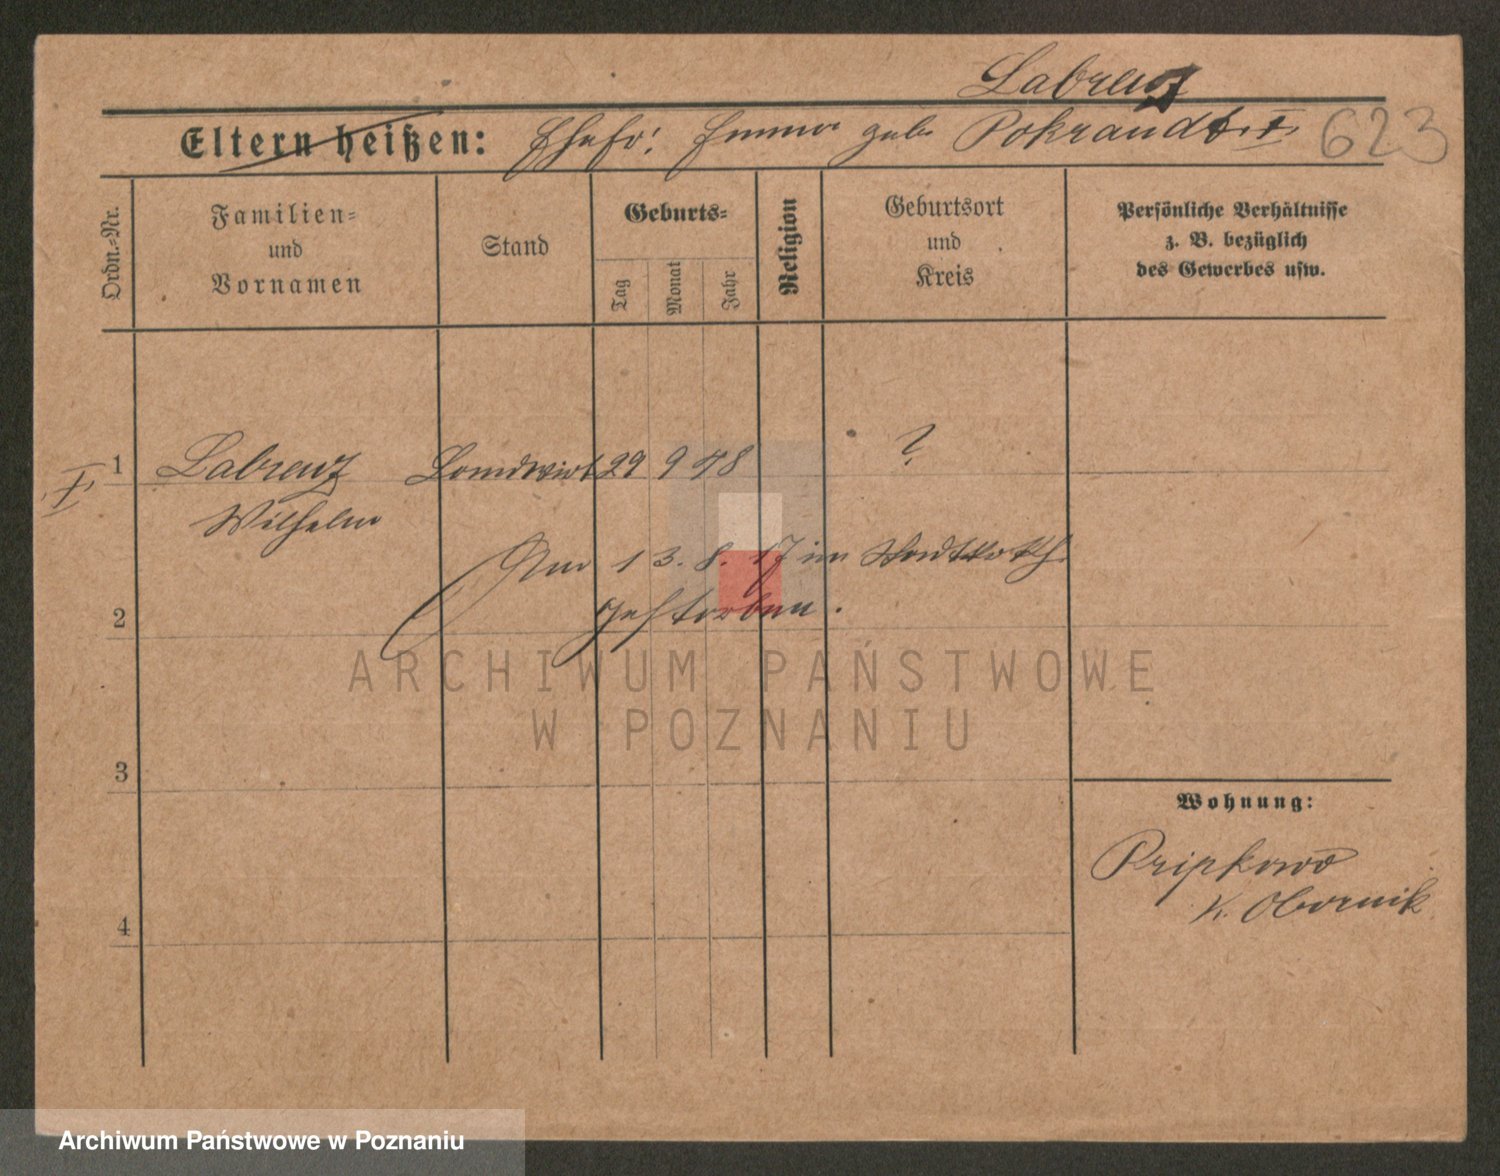 Labrenz
Eltern heißen: Ehefr: Emma geb. Pokrandt. I. 623
Ordn.-Nr.
Familien-
und
Vornamen
Stand
Geburts-
Tag
Monat
Jahr
Religion
Geburtsort
und
Kreis
Persönliche Verhältnisse
z. B. bezüglich
des Gewerbes usw.
I. 1 Labrenz Landwirt 29 9 48 ?
Wilhelm
Am 13. 8. 17 im
gestorben.
2
3
4
ARCHIWUM PAŃSTWOWE
W POZNANIU
Wohnung:
Pripkowo
K. Obornik
Archiwum Państwowe w Poznaniu